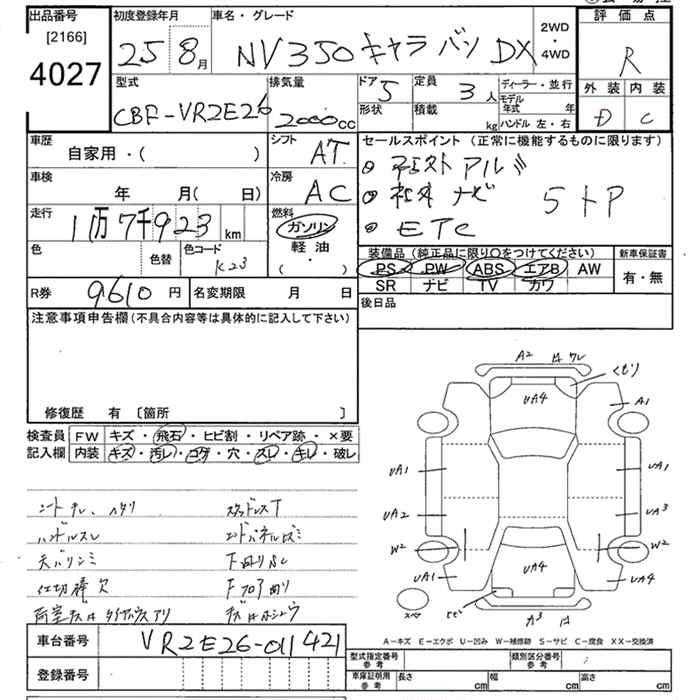 出品番号
[2166]
4027
初度登録年月
25 8月
車名・グレード
NV350 キャラバン DX
2WD
・
4WD
評価点
R
外装 内装
D C
型式
CBF-VR2E26
排気量
2000cc
ドア 5
形状
定員 3人
積載 kg
ディーラー・並行
モデル年式 年
ハンドル 左・右
車歴
自家用・( )
シフト
AT
セールスポイント (正常に機能するものに限ります)
社外 ナビ
ETC
車検
年 月( 日)
冷房
AC
走行
1万7千923 km
燃料
ガソリン
軽油
( ・ )
色
色替
色コード
K23
装備品 (純正品に限り○をつけてください)
PS PW ABS エアB AW
SR ナビ TV カワ
新車保証書
有・無
R券 9610円
名変期限 月 日
後日品
注意事項申告欄 (不具合内容等は具体的に記入して下さい)
修復歴 有 〔箇所 〕
検査員
記入欄
FW キズ・飛石・ヒビ割・リペア跡・×要
内装 キズ・汚レ・コゲ・穴・スレ・キレ・破レ
シートキレ、ヘタリ
スタッドレスT
ハンドルスレ
天バリシミ
下回りサビ
仕切棒欠
A2
UA4
A1
UA1
UA1
UA2
UA3
W2
W2
UA1
UA4
UA4
スペア
A-キズ E-エクボ U-凹み W-補修跡 S-サビ C-腐食 XX-交換済
車台番号
VR2E26-011421
登録番号
型式指定番号
参考
類別区分番号
参考
車庫証明用
参考
長さ cm
幅 cm
高さ cm